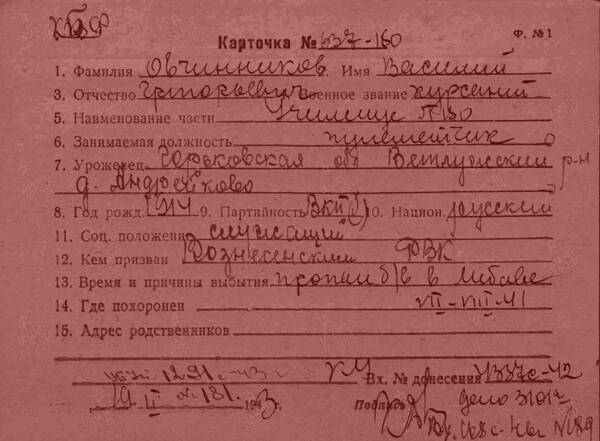 КБФ
Карточка № 537-160 Ф. № 1
1. Фамилия Овчинников. Имя Василий
3. Отчество Григорьевич Военное звание курсант
5. Наименование части Училище ПВО
6. Занимаемая должность пулеметчик
7. Уроженец Горьковская обл Ветлужский р-н
д. Андрейково
8. Год рожд. 1914 9. Партийность ВКП(б) 10. Национ. русский
11. Соц. положение служащий
12. Кем призван Вознесенским РВК
13. Время и причины выбытия пропал б/в в Либаве
14. Где похоронен VII-VIII-41
15. Адрес родственников
1291с-43г
Вх. № донесения 4337с-42
19 II № 181. 1943г. Подпись дело 3101с